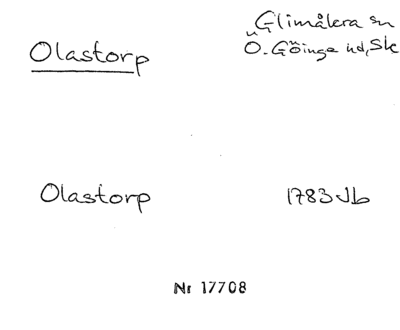 Olastorp
Glimåkra sn
Ö. Göinge hd, Sk
Olastorp 1783 Jb
Nr 17708